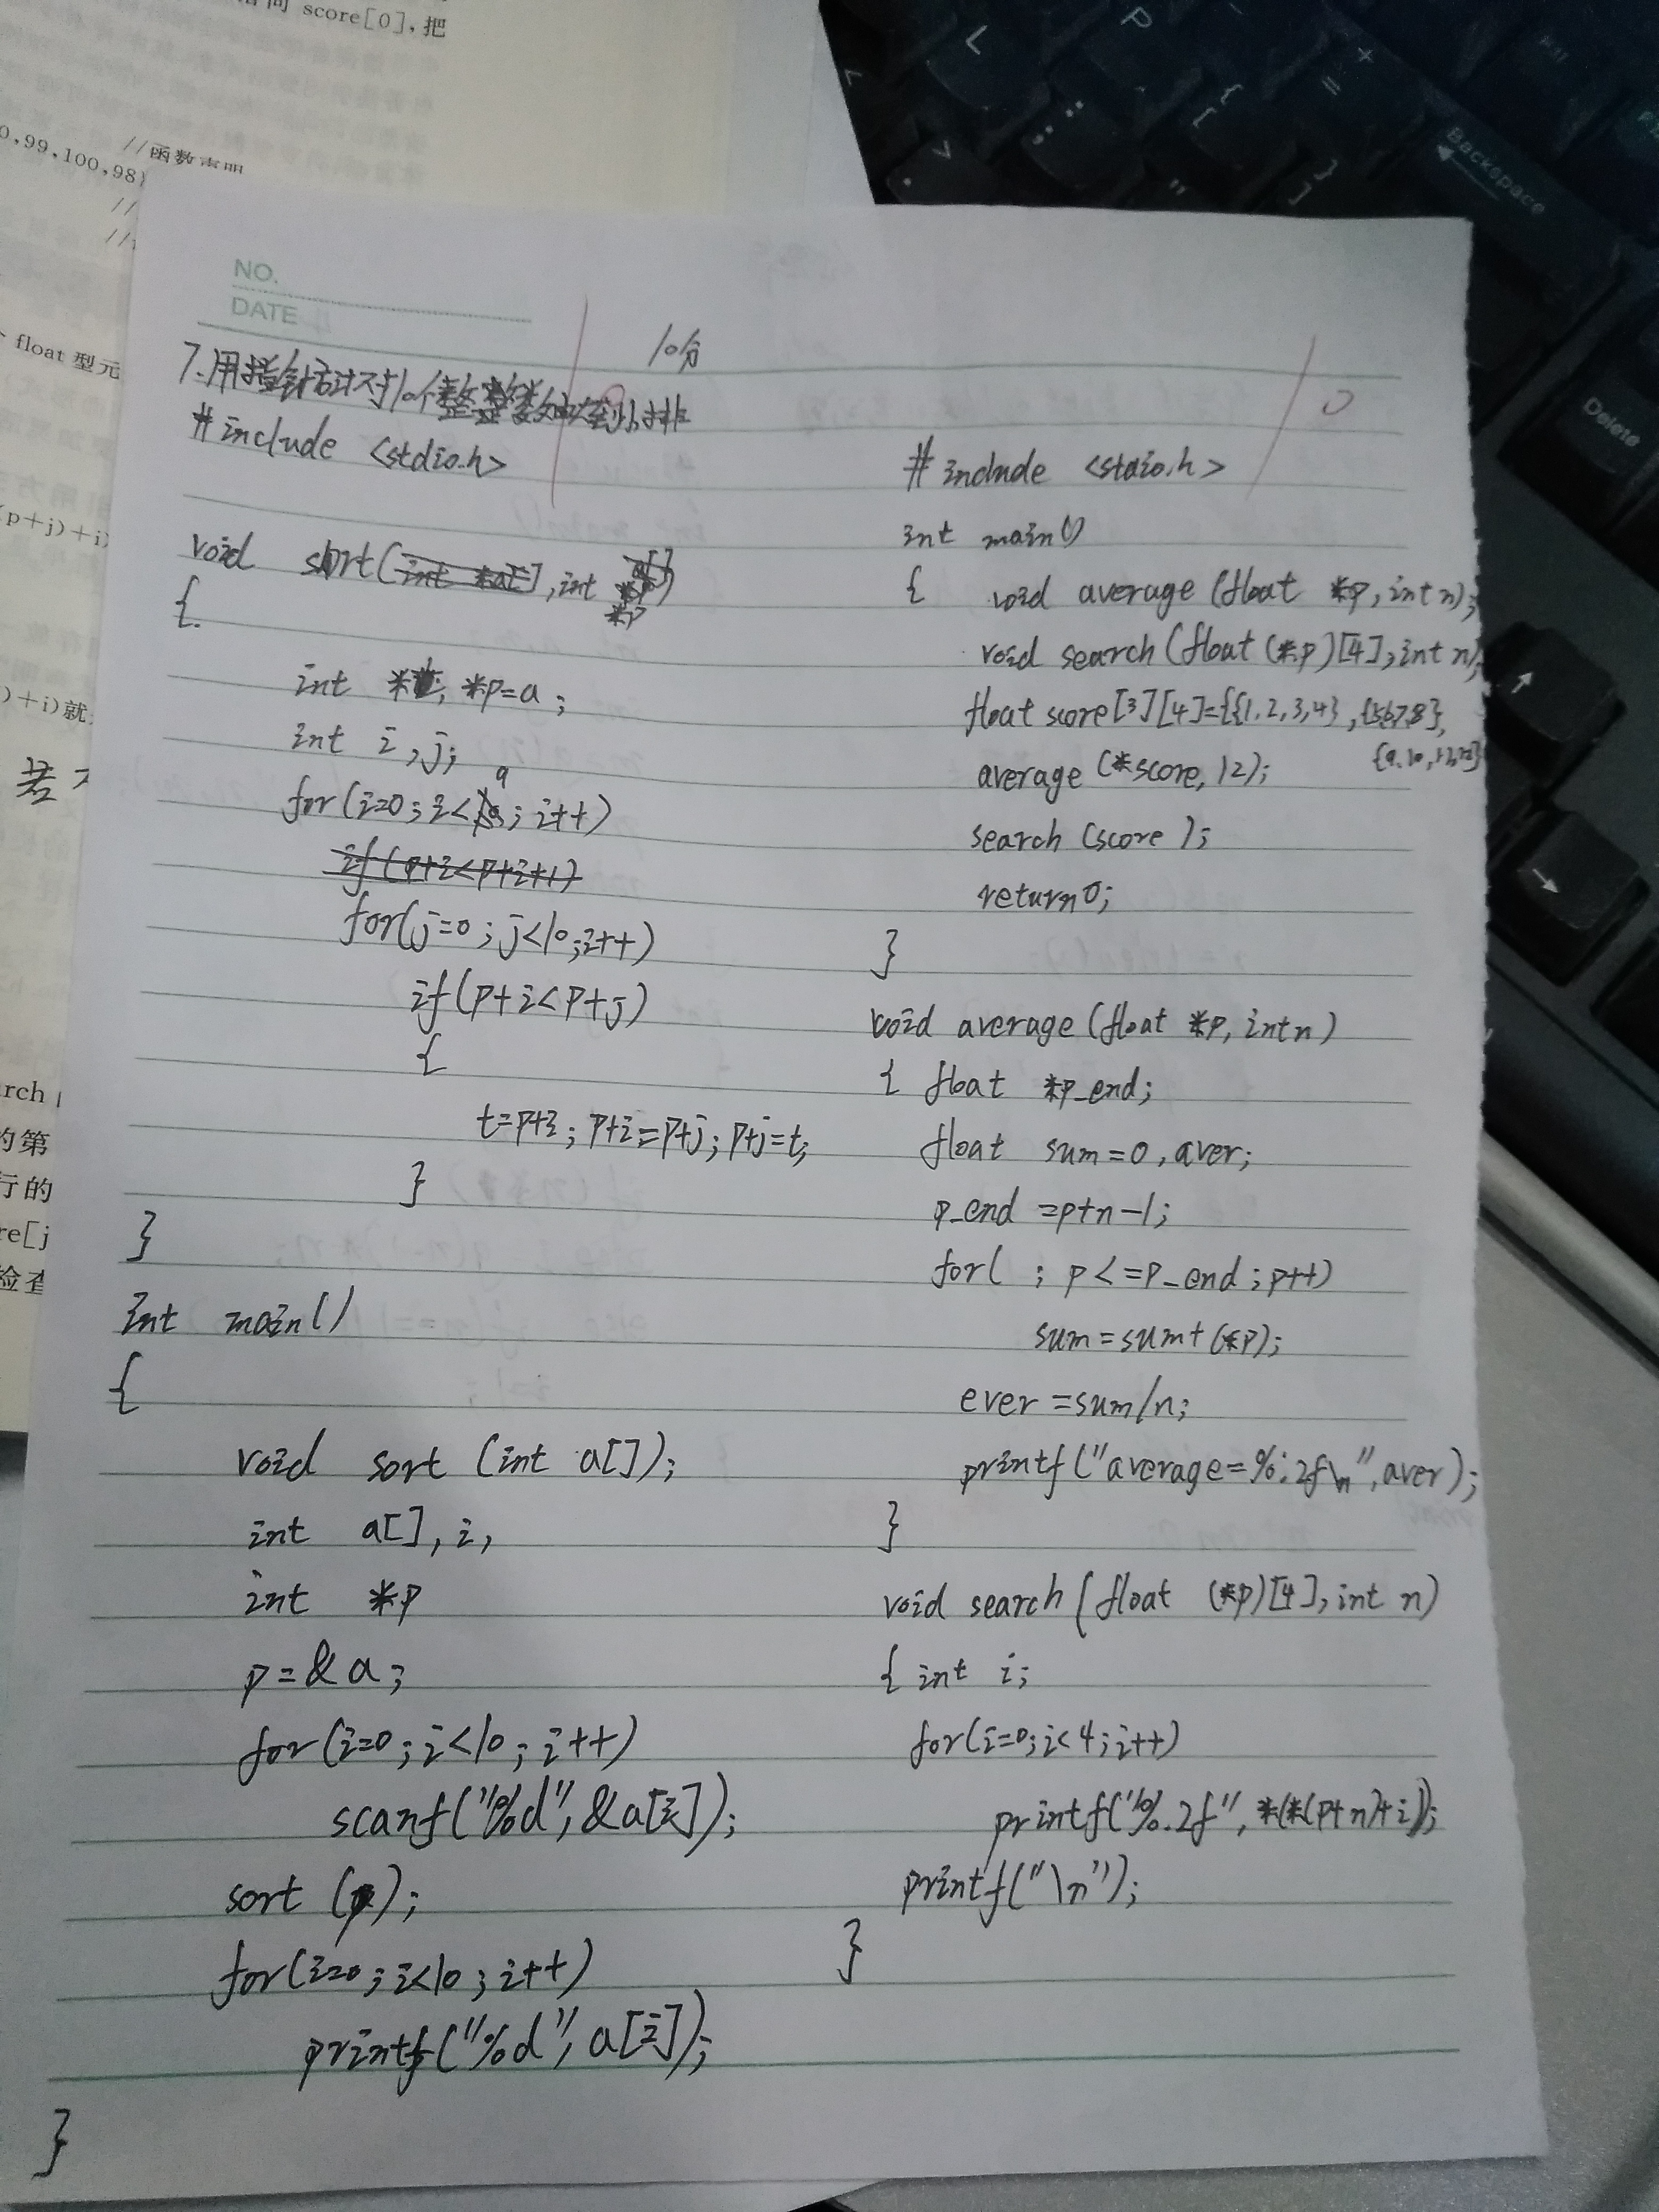 score[0],把
//函数声明
0,99,100,98}
//
//
float 型元
(p+j)+i)
)+i)就
若
rch
的第
行的
re[j
检查
NO.
DATE
10分
7.用指针方法对10个整数由大到小排
#include <stdio.h>
void sort(int *p)
{
int *p=a;
int i,j;
for(i=0;i<9;i++)
if(p+i<p+i+1)
for(j=0;j<10;i++)
if(p+i<p+j)
{
t=p+i; p+i=p+j; p+j=t;
}
}
int main()
{
void sort (int a[]);
int a[],i,
int *p
p=&a;
for(i=0;i<10;i++)
scanf("%d",&a[i]);
sort (p);
for(i=0;i<10;i++)
printf("%d",a[i]);
}
0
#include <stdio.h>
int main()
{ void average (float *p,int n);
void search(float (*p)[4],int n);
float score[3][4]={{1,2,3,4},{5,6,7,8},
{9,10,12,12}}
average (*score,12);
search (score );
return 0;
}
void average(float *p,int n)
{ float *p_end;
float sum=0,aver;
p_end =p+n-1;
for( ;p<=p_end;p++)
sum=sum+(*p);
ever=sum/n;
printf("average=%.2f\n",aver);
}
void search(float (*p)[4],int n)
{ int i;
for(i=0;i<4;i++)
printf("%.2f",*(*(p+n)+i));
printf("\n");
}
L
P
{
[
}
]
+
=
Backspace
Delete